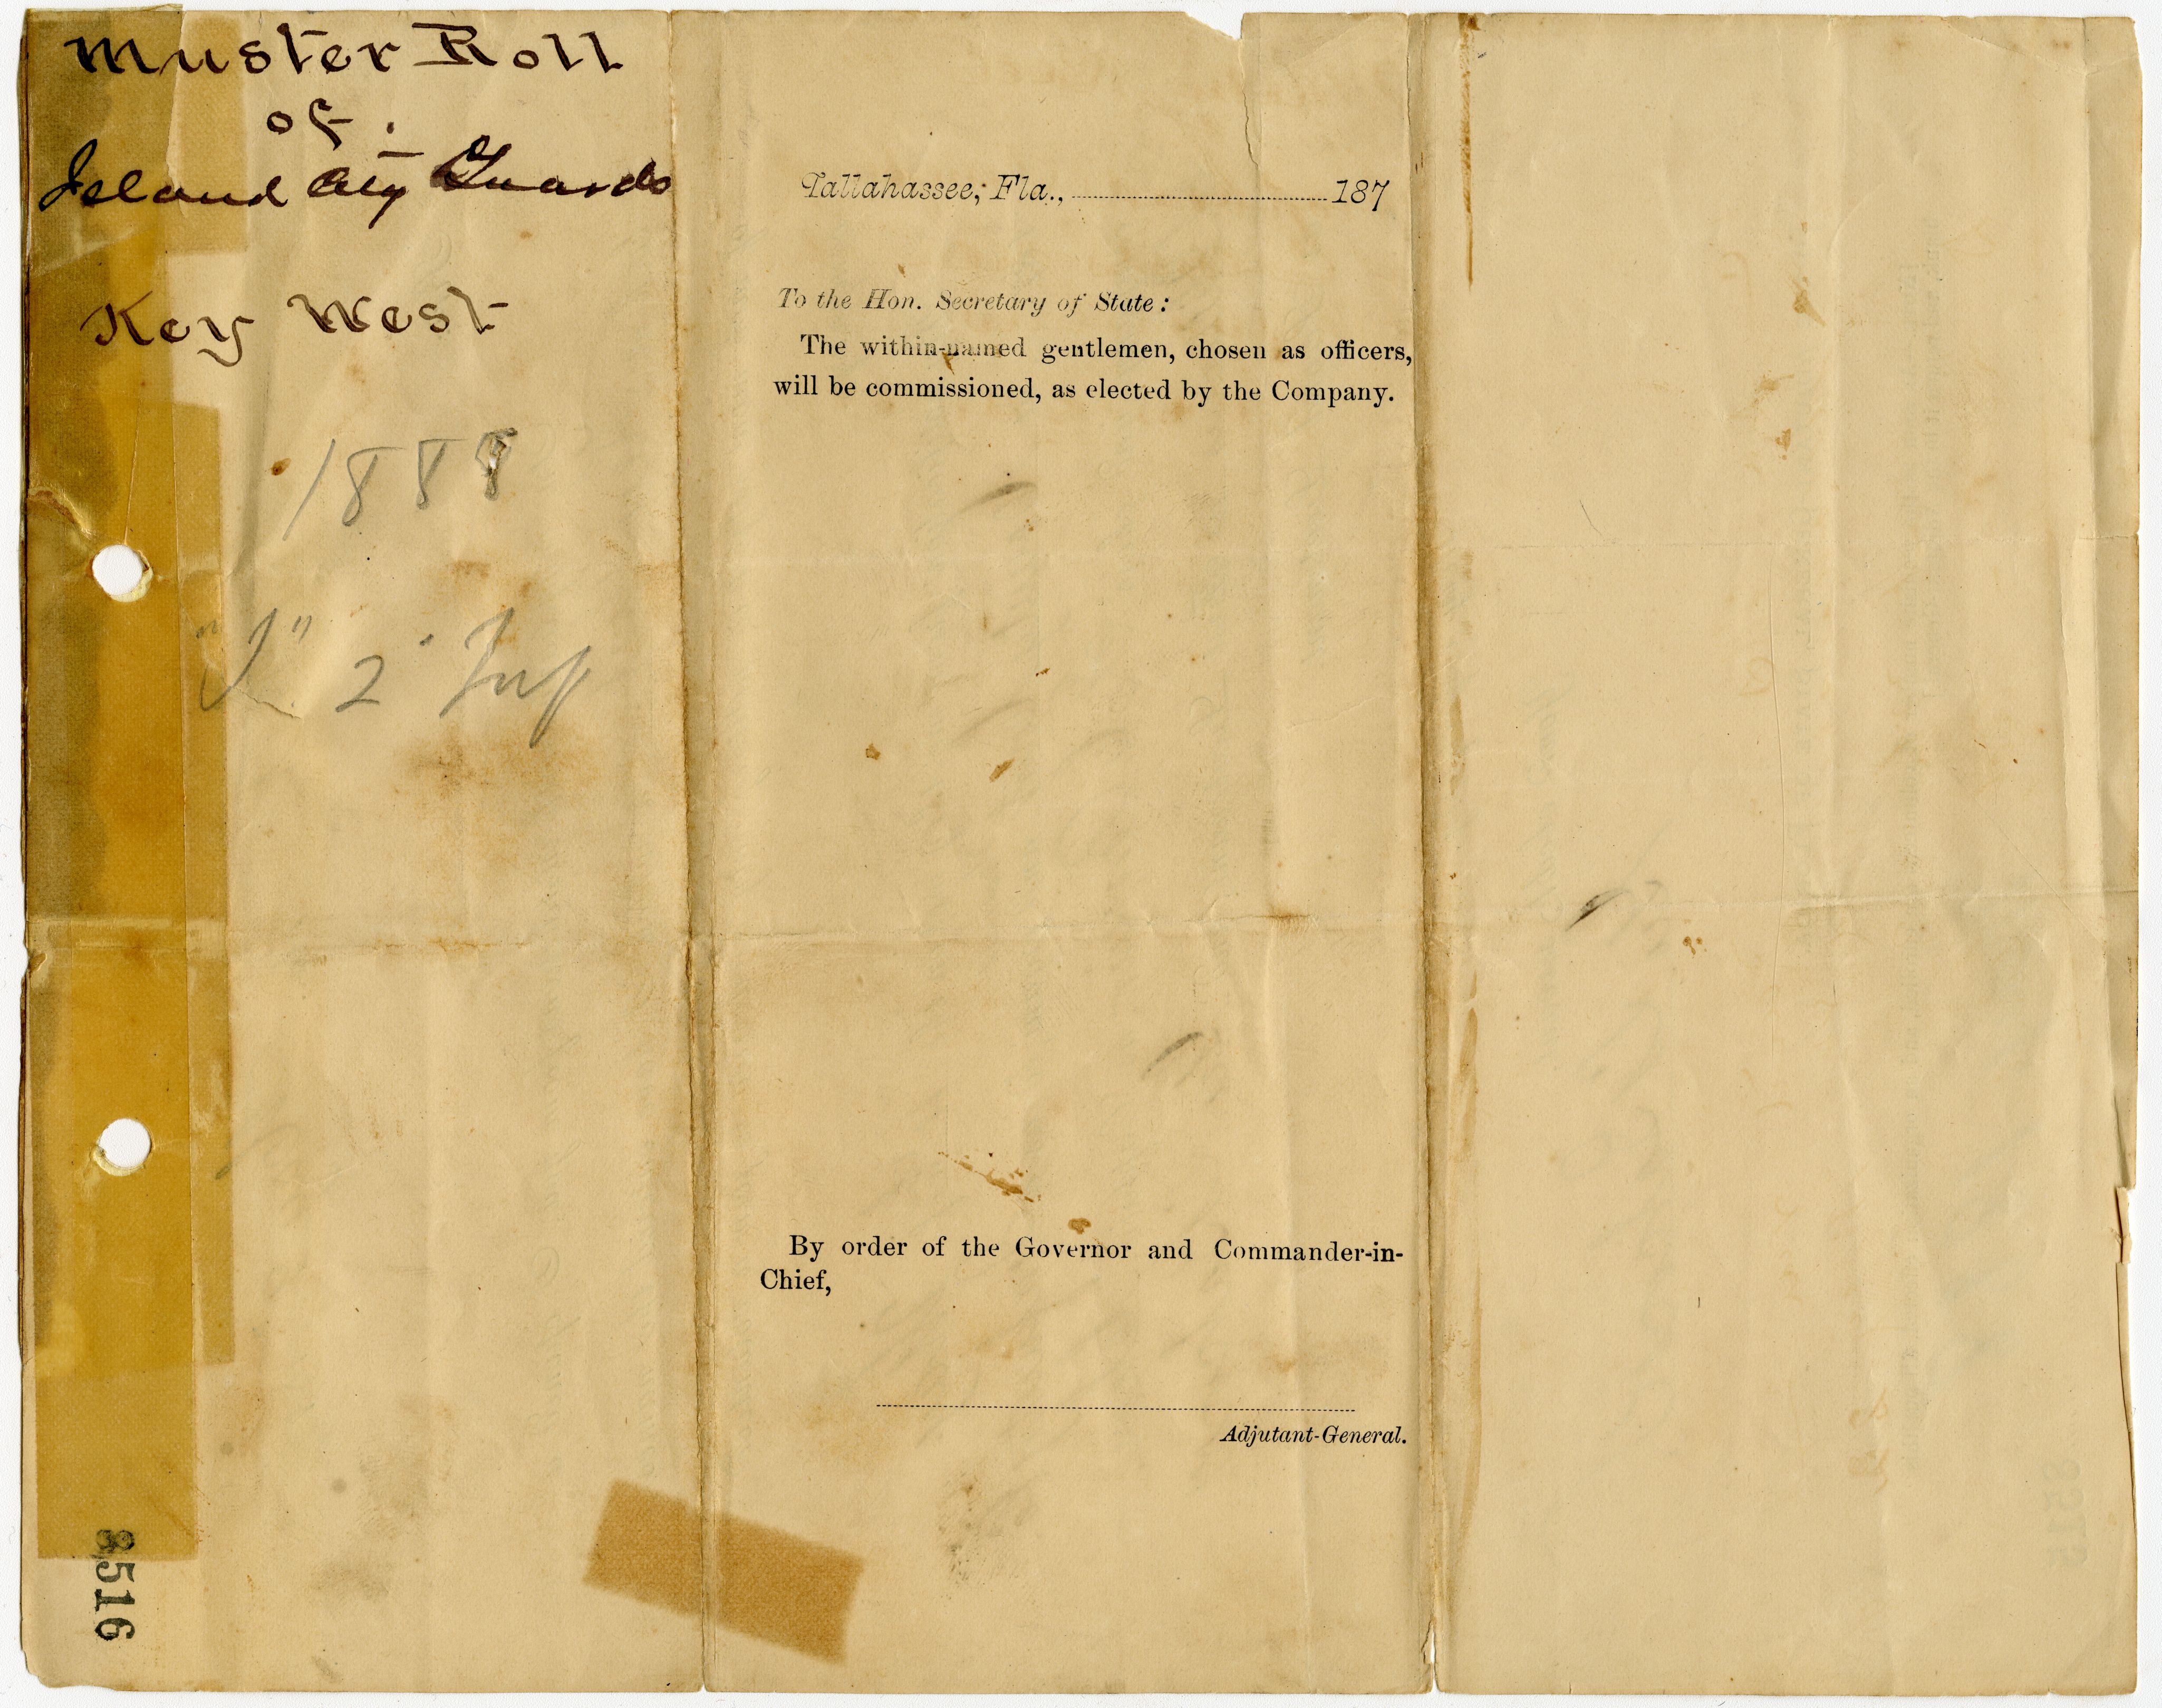 Muster Roll
of
Island City Guards
Key West
1888
"I" 2" Inf
8516
Tallahassee, Fla., 187
To the Hon. Secretary of State:
The within-named gentlemen, chosen as officers,
will be commissioned, as elected by the Company.
By order of the Governor and Commander-in-
Chief,
Adjutant-General.